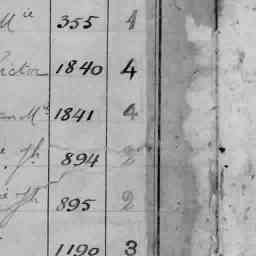 Mie 355 1
ictor 1840 4
M 1841 4
Jh 894 2
Jh 895 2
1190 3